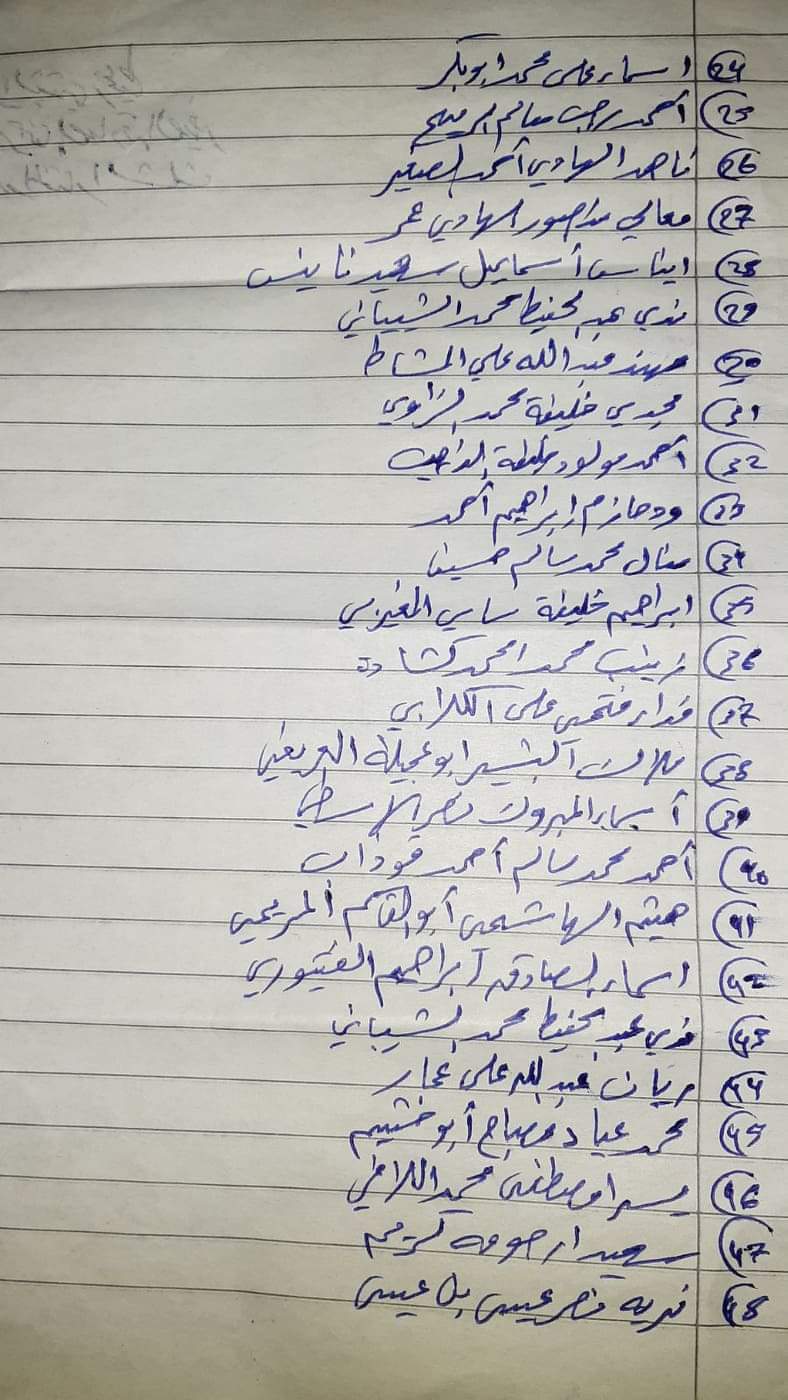 24 اسماء على محمد ابوبكر
25 أحمد رجب سالم
26 ناصر الهادي أحمد الصغير
27 معالي منصور الهادي عمر
28 ايناس أسماعيل سعيد نا ينس
29 ندي عبد الحفيظ محمد الشيباني
30 مهند عبد الله علي المشاط
31 مجدي خليفة محمد الزاوي
32 أحمد مولود خليفة
33 حازم إبراهيم أحمد
34 منال محمد سالم حسين
35 ابراهيم خليفة ساسي المغيربي
36 زينب محمد امحمد كشادة
37 فتحي على الكلابي
38 ملاك البشير ابوعجيلة العريفي
39 أسماء المبروك نصر
40 أحمد محمد سالم أحمد
41 هيثم الهاشمى أبوالقاسم المريمى
42 اسماء الصادق أبراهيم الفيتوري
43 ندي عبد الحفيظ محمد الشيباني
44 ريان عبد الله على عمار
45 محمد عياد مصباح أبوخشيم
46 يسرا مصطفى محمد اللافي
47 سعيد ارحومه كريم
48 نصر عيسى بن عيسى